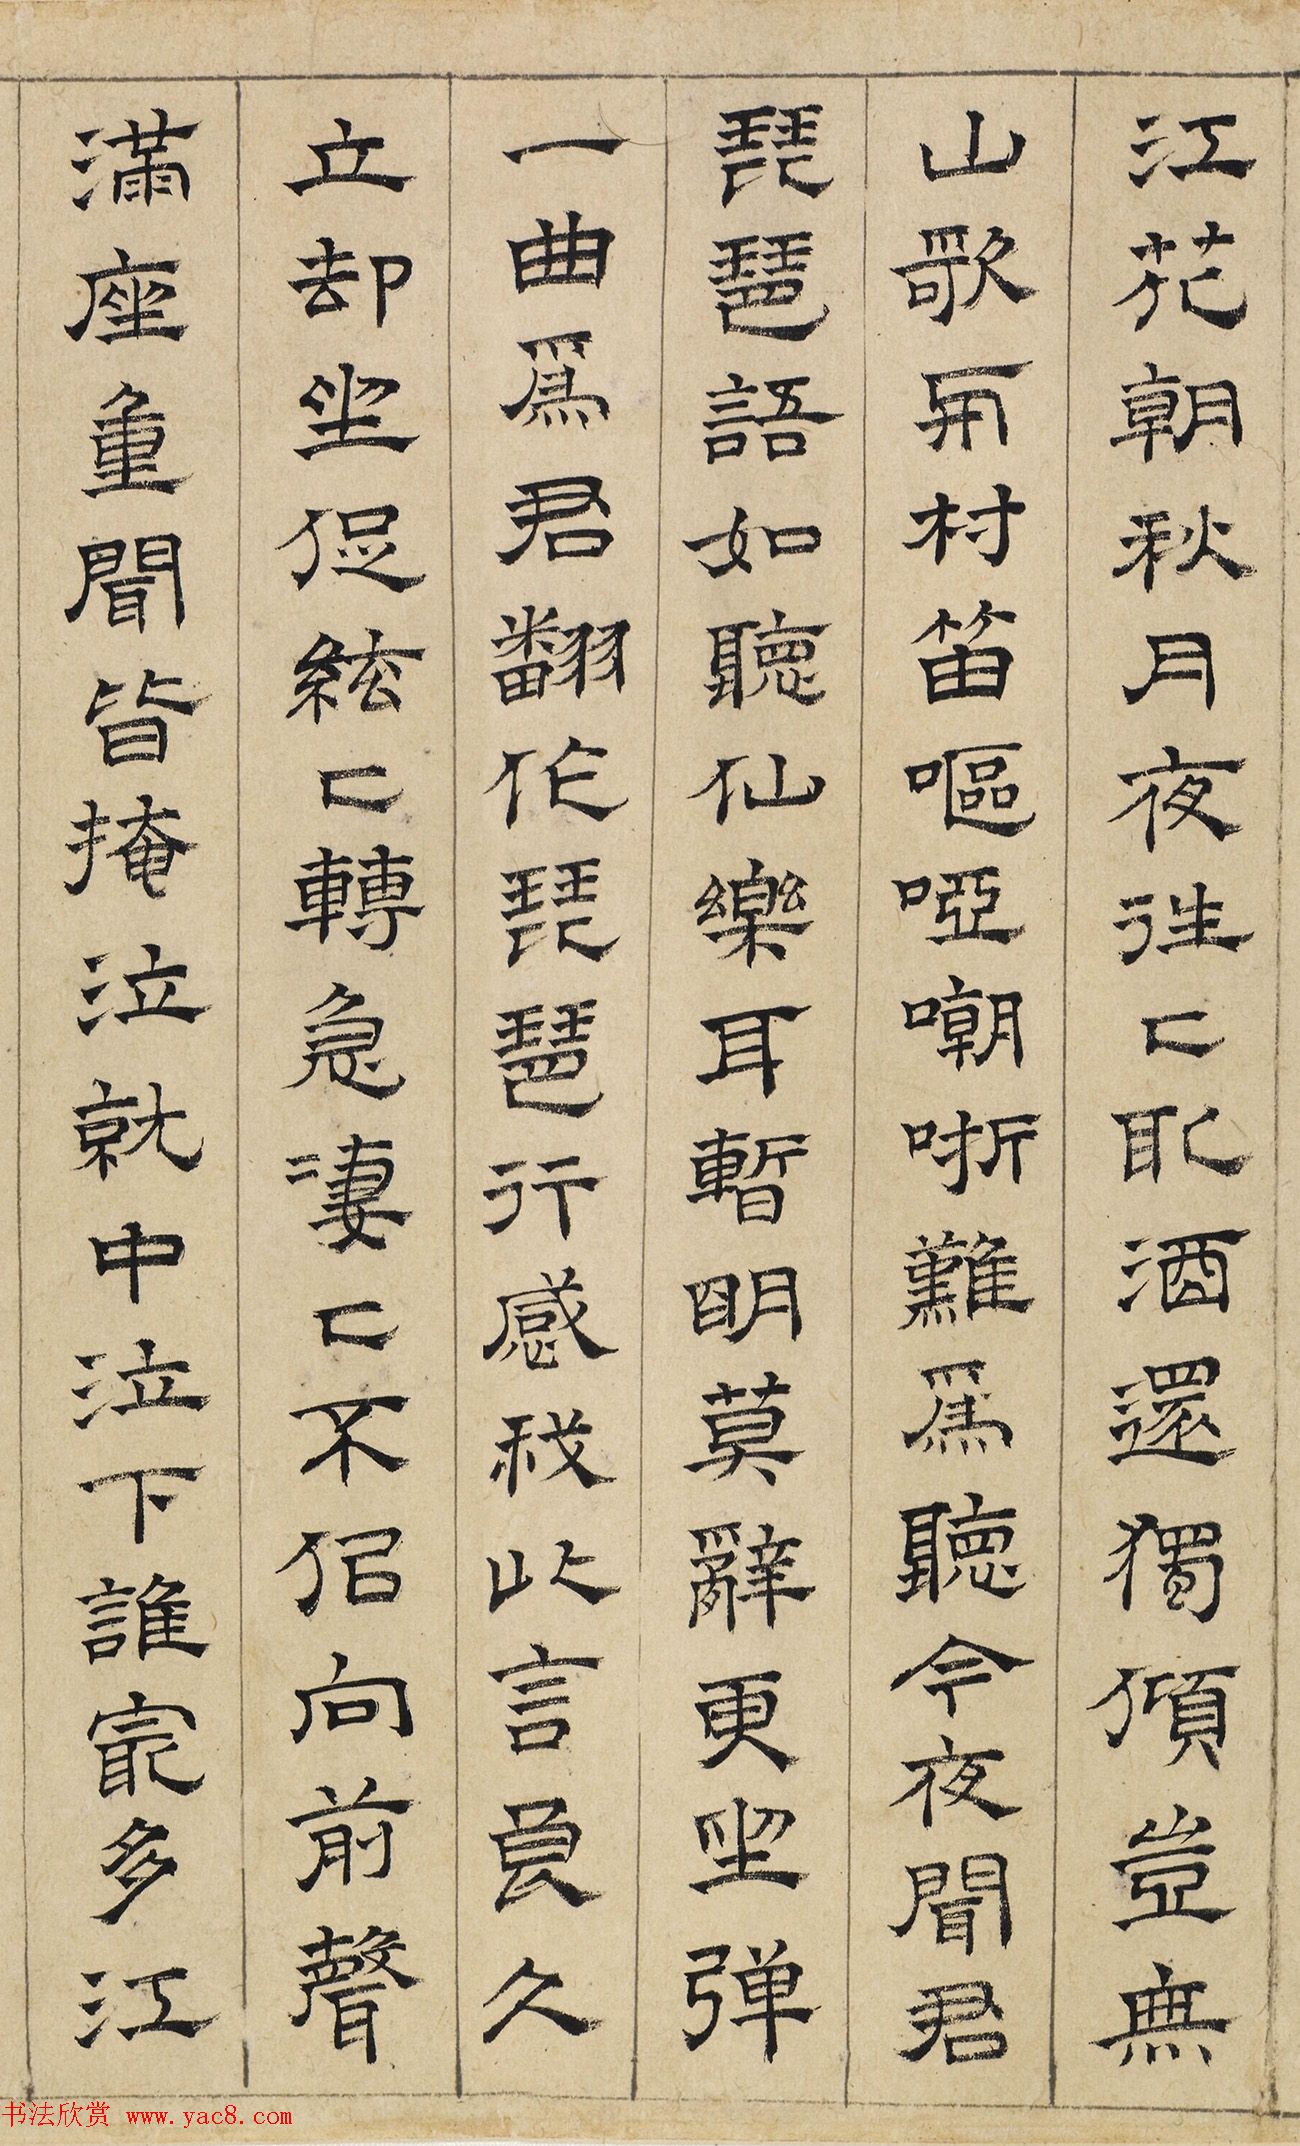 江花朝秋月夜往〻取酒還獨傾豈無
山歌與村笛嘔啞嘲哳難爲聽今夜聞君
琵琶語如聽仙樂耳暫明莫辭更坐弹
一曲爲君翻作琵琶行感我此言良久
立却坐促絃〻轉急凄〻不似向前聲
滿座重聞皆掩泣就中泣下誰最多江
书法欣赏 www.yac8.com